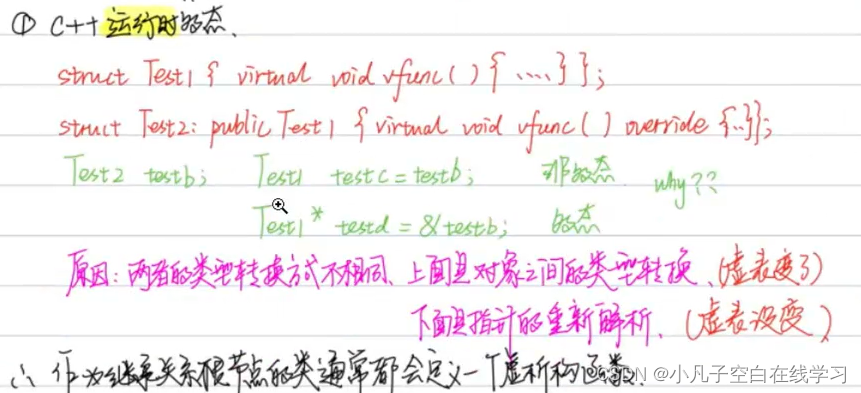 ① C++ 运行时多态、
struct Test1 { virtual void vfunc() { .... } };
struct Test2: public Test1 { virtual void vfunc() override {..}};
Test2 testb; Test1 testc = testb; 非多态 why??
Test1* testd = &testb; 多态
原因: 两者的类型转换方式不相同、上面是对象之间的类型转换、(虚表变了)
下面是指针的重新解析、(虚表没变)
∴ 作为继承关系根节点的类通常都会定义一个虚析构函数.
CSDN @小凡子空白在线学习